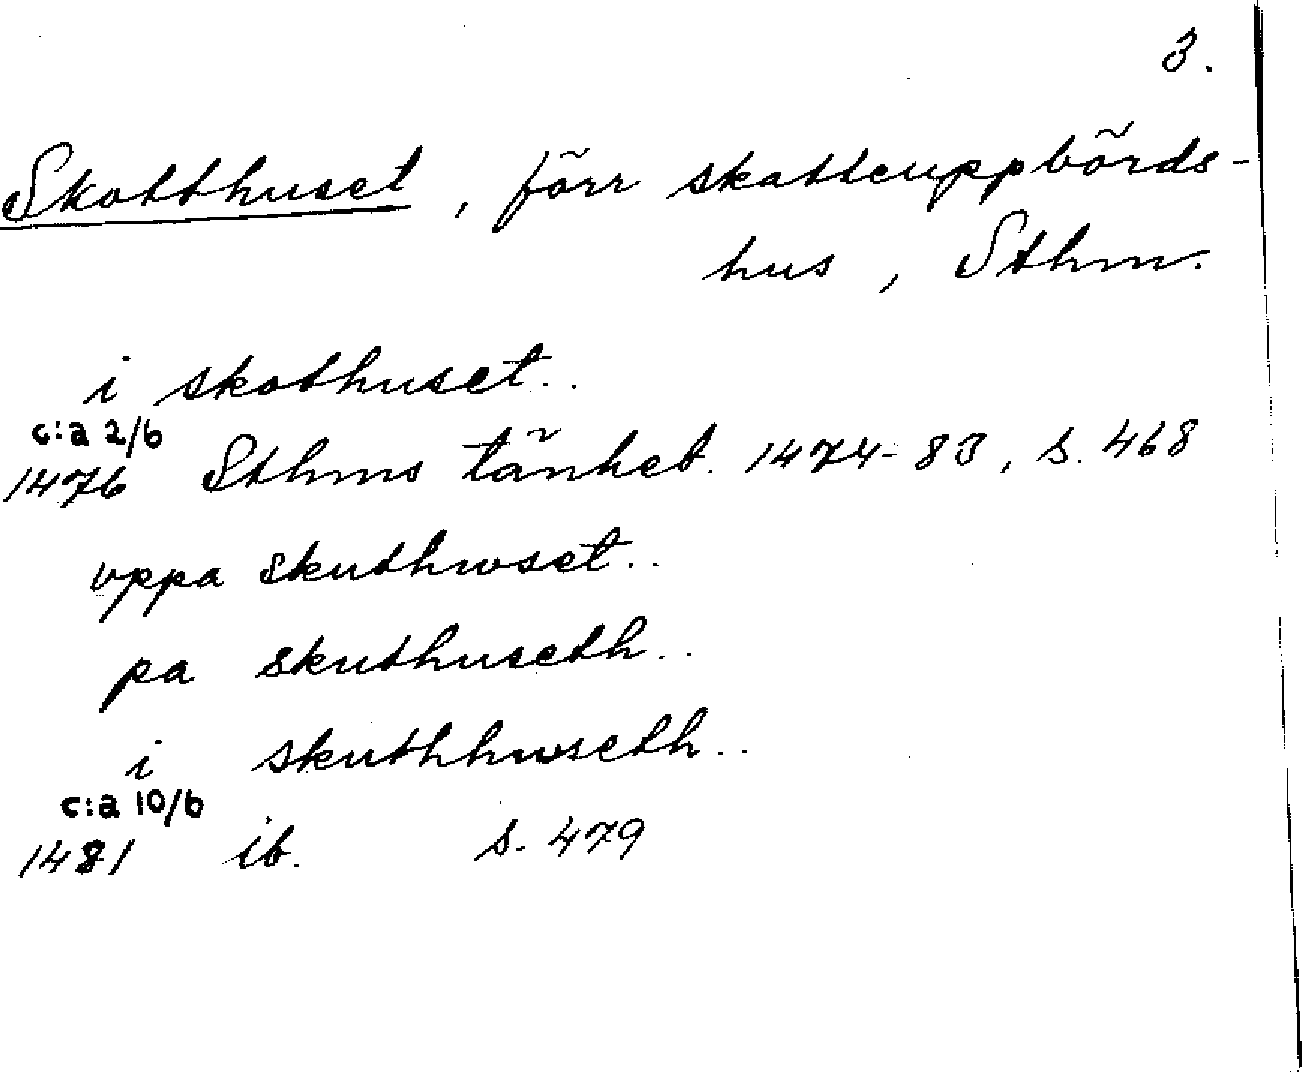 3.
Skotthuset, förr skatteuppbörds-
hus, Sthm.
i skothuset..
c:a 2/6
1476 Sthms tänkeb. 1474-83, s. 468
vppa skuthwset..
pa skuthuseth..
i skuthhwseth..
c:a 10/6
1481 ib. s. 479